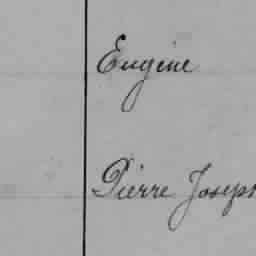 Eugène
Pierre Joseph